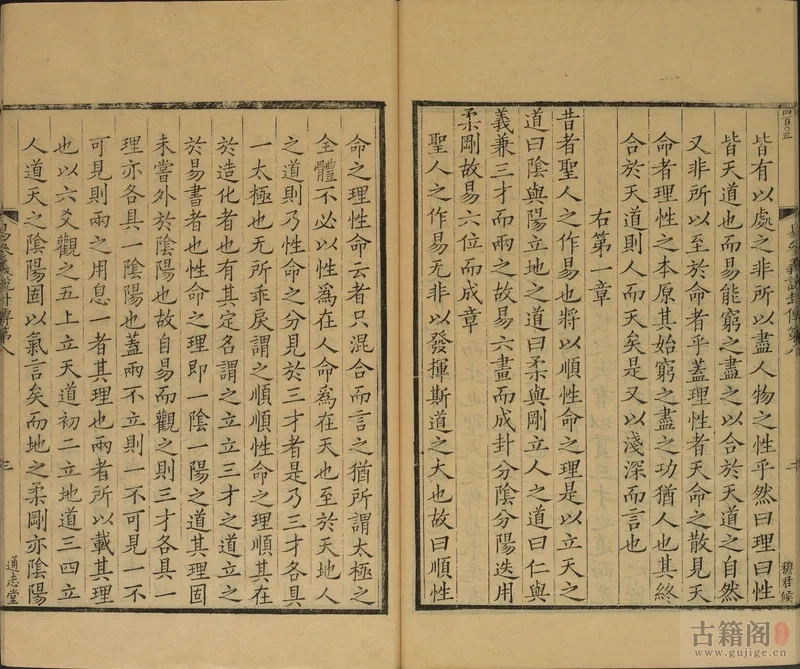 四百五
皆有以處之非所以盡人物之性乎然曰理曰性
皆天道也而易能窮之盡之以合於天道之自然
又非所以至於命者乎蓋理性者天命之散見天
命者理性之本原其始窮之盡之功猶人也其終
合於天道則人而天矣是又以淺深而言也
右第一章
昔者聖人之作易也將以順性命之理是以立天之
道曰陰與陽立地之道曰柔與剛立人之道曰仁與
義兼三才而兩之故易六畫而成卦分陰分陽迭用
柔剛故易六位而成章
聖人之作易无非以發揮斯道之大也故曰順性
穆君候
易參義說卦傳第八
命之理性命云者只混合而言之猶所謂太極之
全體不必以性爲在人命爲在天也至於天地人
之道則乃性命之分見於三才者是乃三才各具
一太極也无所乖戾謂之順順性命之理順其在
於造化者也有其定名謂之立立三才之道立之
於易書者也性命之理即一陰一陽之道其理固
未嘗外於陰陽也故自易而觀之則三才各具一
理亦各具一陰陽也蓋兩不立則一不可見一不
可見則兩之用息一者其理也兩者所以載其理
也以六爻觀之五上立天道初二立地道三四立
人道天之陰陽固以氣言矣而地之柔剛亦陰陽
易參義說卦傳第八
通志堂
古籍阁
www.gujige.cn